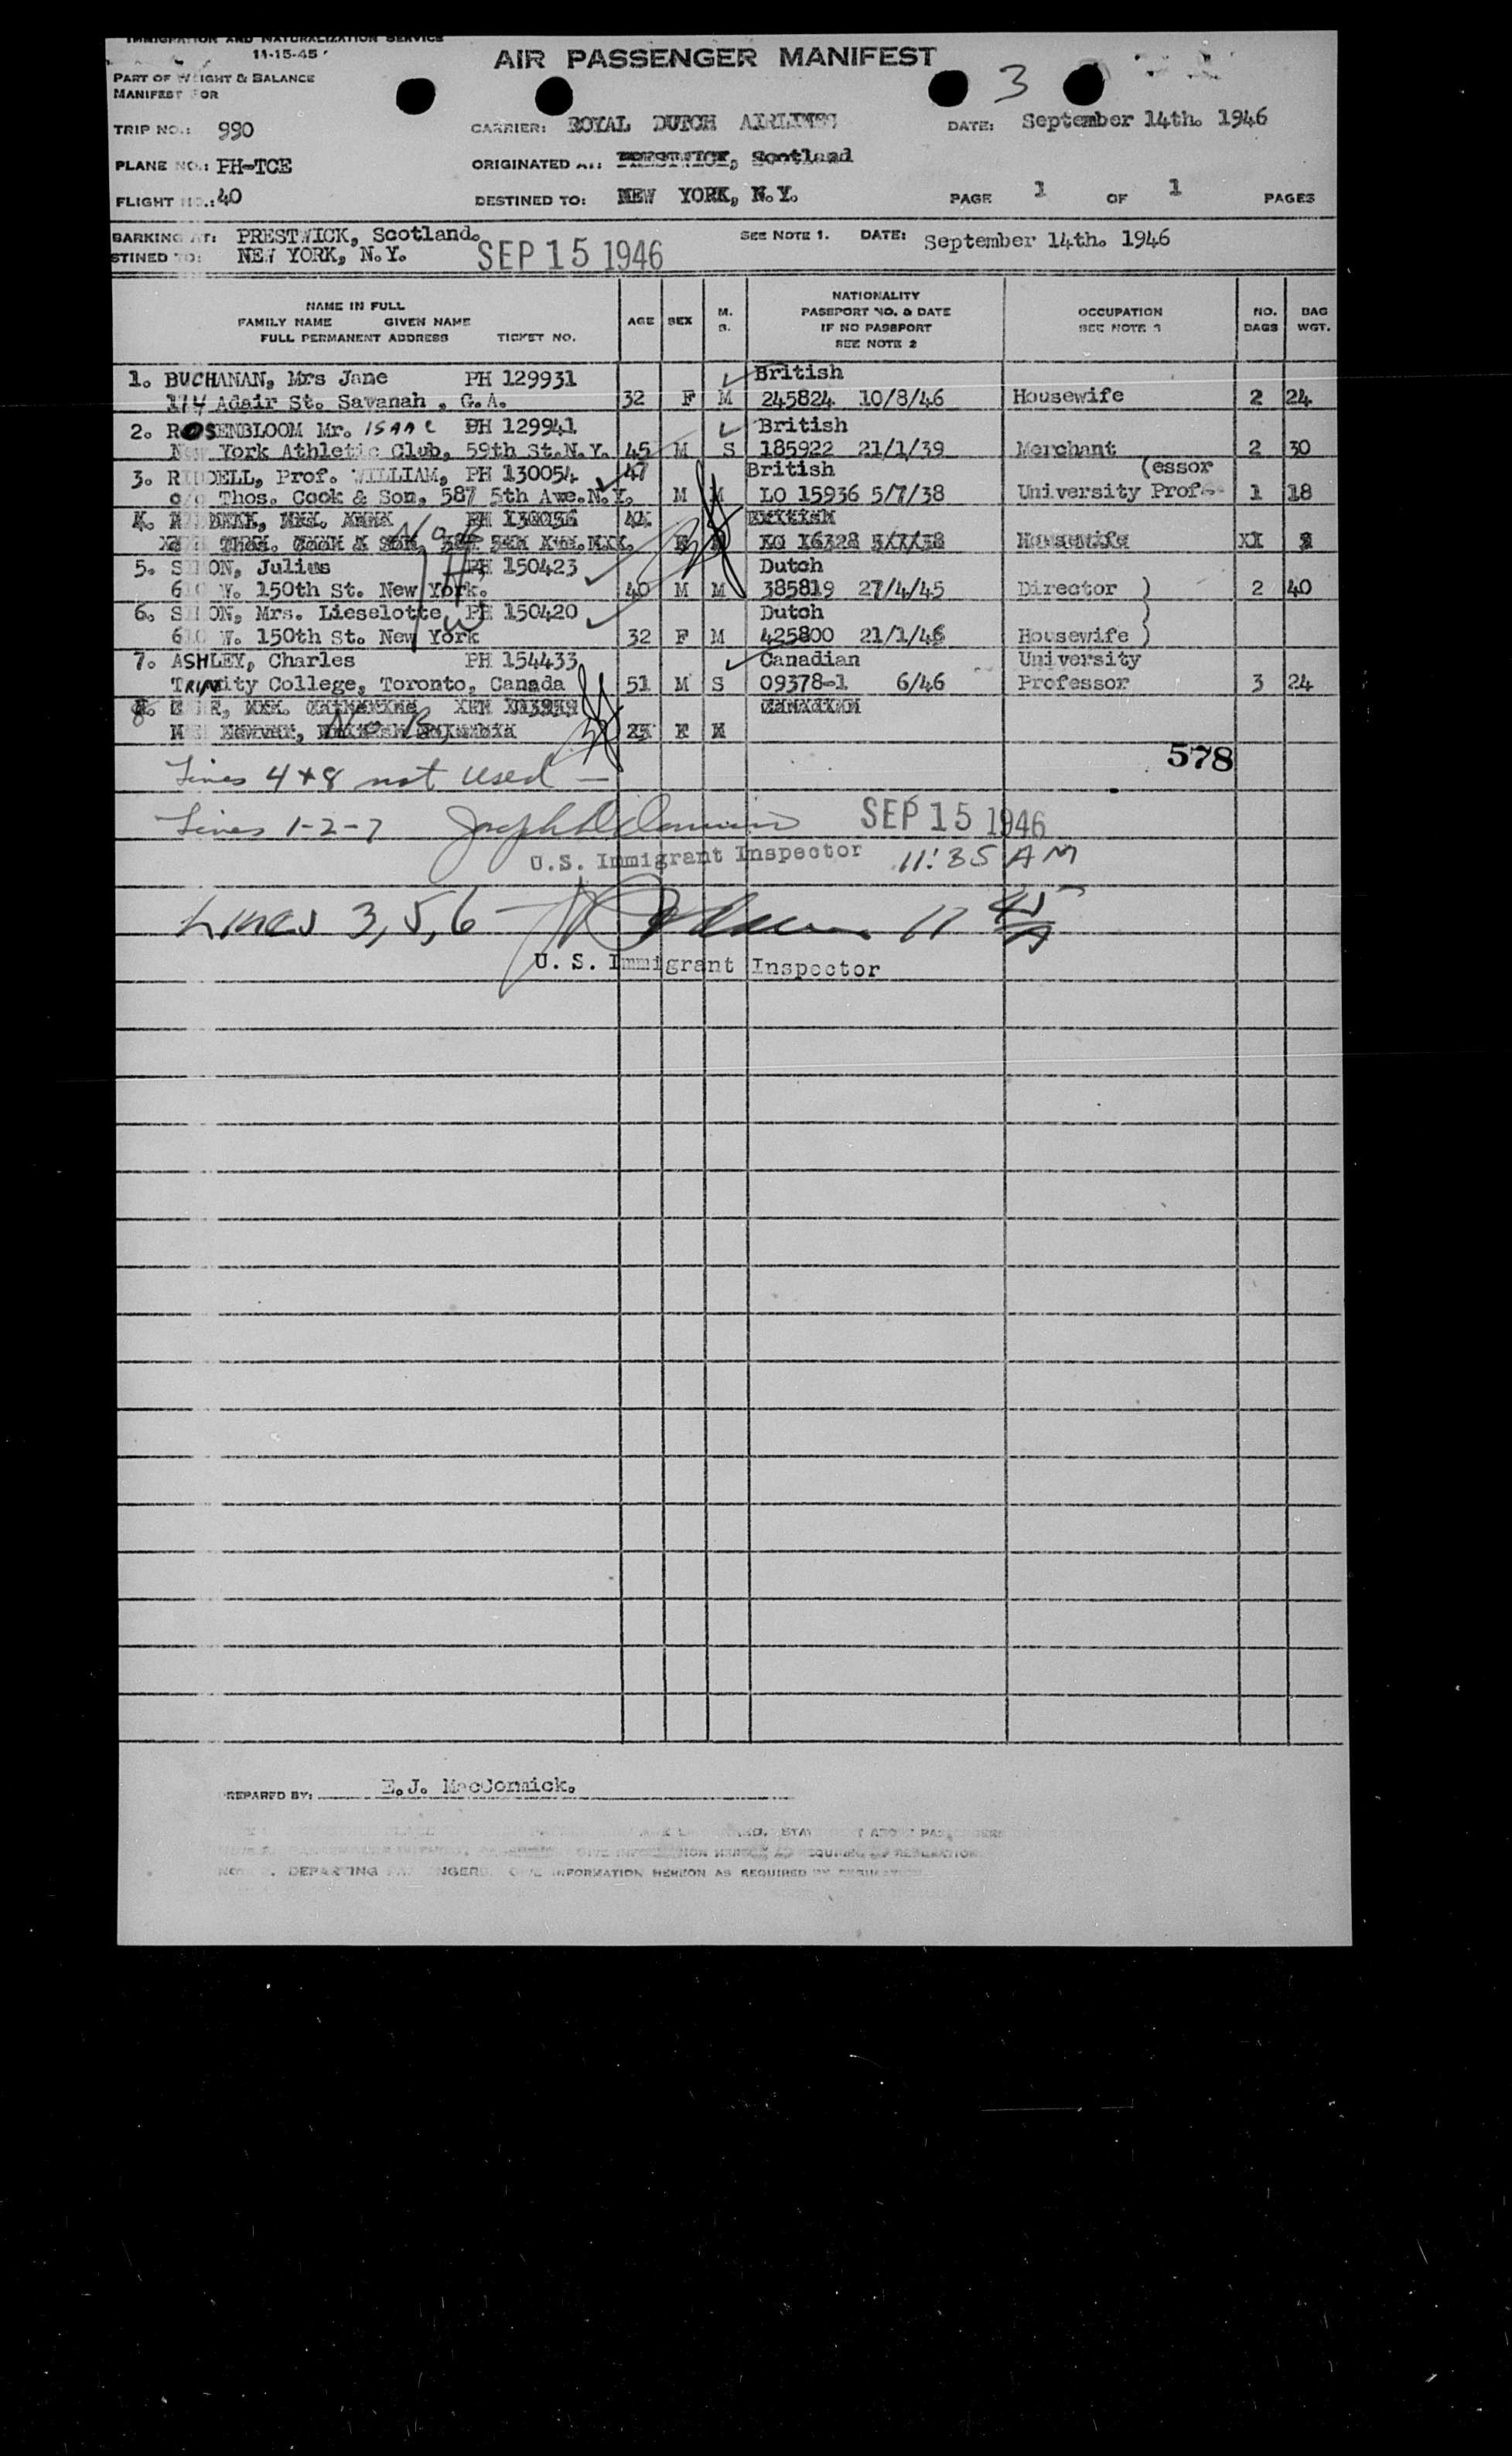 IMMIGRATION AND NATURALIZATION SERVICE
11-15-45
AIR PASSENGER MANIFEST
3
PART OF WEIGHT & BALANCE
MANIFEST FOR
TRIP NO.: 990 CARRIER: ROYAL DUTCH AIRLINES DATE: September 14th. 1946
PLANE NO.: PH-TCE ORIGINATED AT: PRESTWICK, Scotland
FLIGHT NO.: 40 DESTINED TO: NEW YORK, N.Y. PAGE 1 OF 1 PAGES
BARKING AT: PRESTWICK, Scotland. SEE NOTE 1. DATE: September 14th. 1946
STINED TO: NEW YORK, N.Y. SEP 15 1946
NAME IN FULL
FAMILY NAME GIVEN NAME
FULL PERMANENT ADDRESS TICKET NO.
AGE SEX M. S.
NATIONALITY
PASSPORT NO. & DATE
IF NO PASSPORT
SEE NOTE 2
OCCUPATION
SEE NOTE 3
NO. BAGS
BAG WGT.
1. BUCHANAN, Mrs Jane PH 129931 British
114 Adair St. Savanah , G.A. 32 F M 245824 10/8/46 Housewife 2 24
2. ROSENBLOOM Mr. ISAAC PH 129941 British
New York Athletic Club, 59th St.N.Y. 45 M S 185922 21/1/39 Merchant 2 30
3. RIDDELL, Prof. WILLIAM, PH 130054 47 British (essor
c/o Thos. Cook & Son, 587 5th Ave.N.Y. M M LO 15936 5/7/38 University Prof 1 18
5. SIMON, Julius PH 150423 Dutch
610 W. 150th St. New York. 40 M M 385819 27/4/45 Director ) 2 40
6. SIMON, Mrs. Lieselotte, PH 150420 Dutch )
610 W. 150th St. New York 32 F M 425800 21/1/46 Housewife )
7. ASHLEY, Charles PH 154433 Canadian University
TRINity College, Toronto, Canada 51 M S 09378-1 6/46 Professor 3 24
8
578
Lines 4+8 not used —
Lines 1-2-7 SEP 15 1946
U.S. Immigrant Inspector 11:35 AM
Lines 3,5,6 — 11 45 A
U. S. Immigrant Inspector
PREPARED BY: E.J. MacCormick.
DEPARTING PASSENGERS. GIVE INFORMATION HEREON AS REQUIRED BY REGULATION